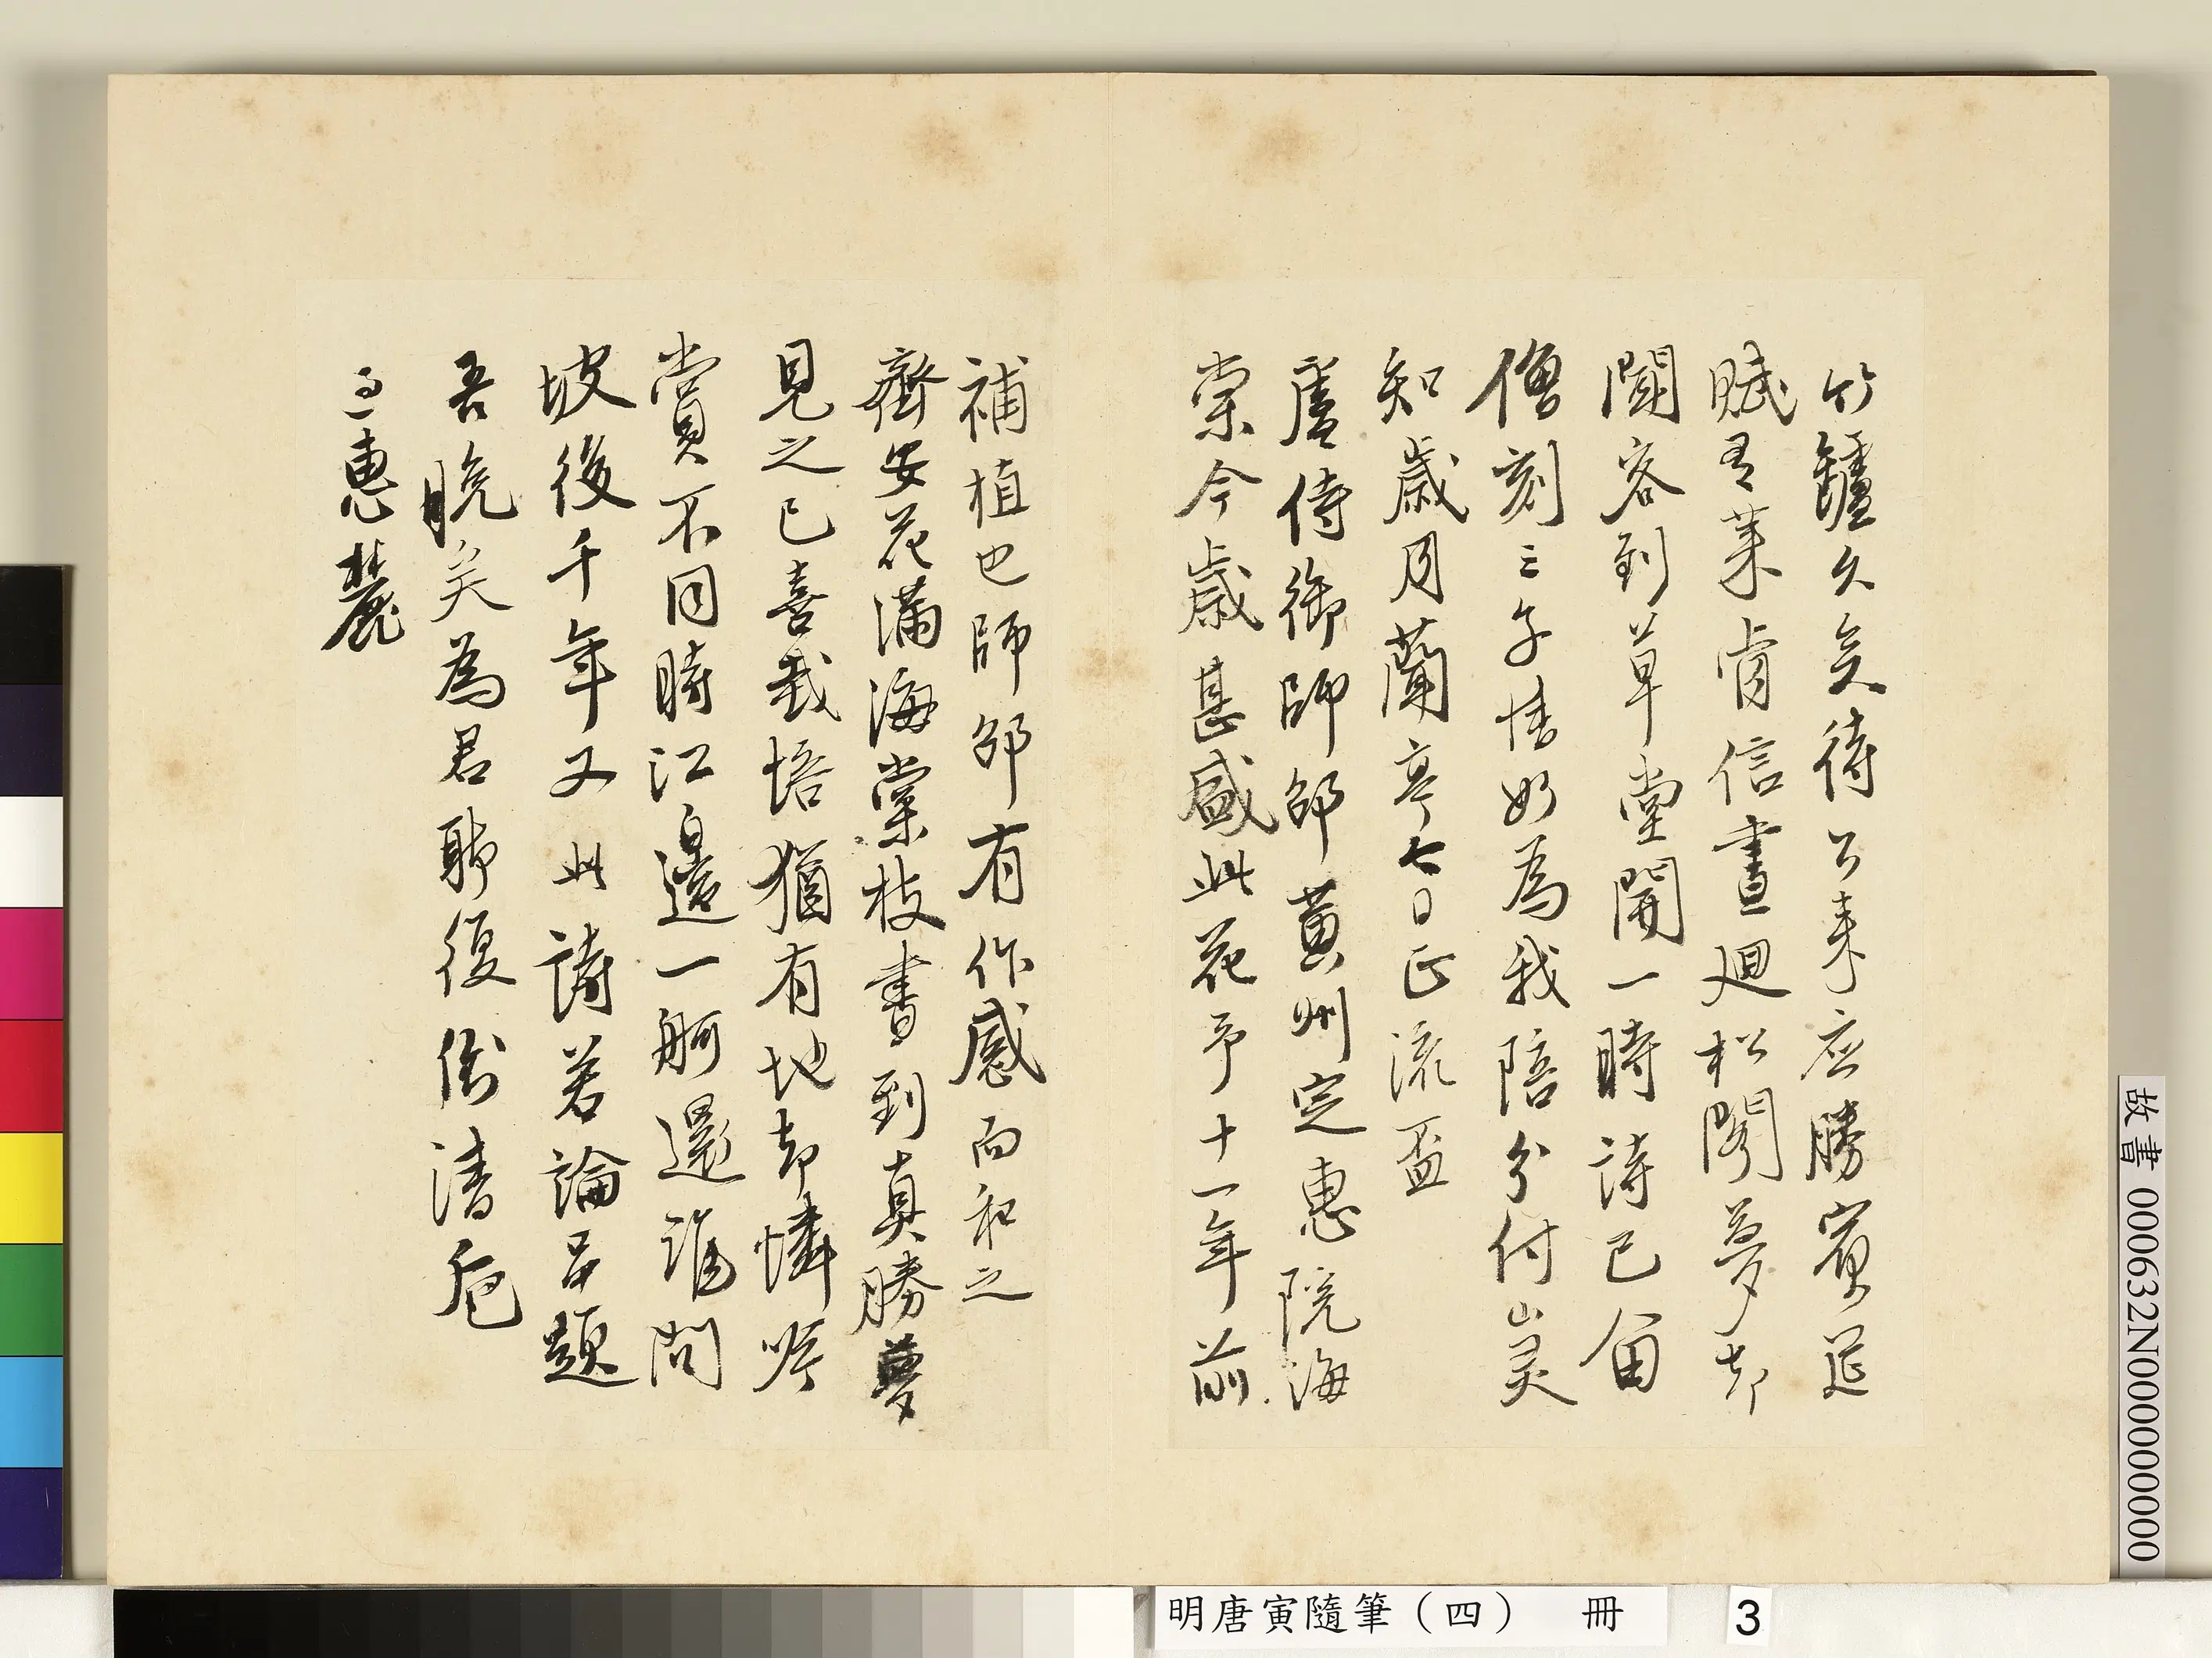 竹罏久矣待公来應勝賓筵
賦有萊肯信晝廻松閣夢却
闌客到草堂開一時詩已留
僧刻三子情好為我陪分付山灵
知歲月蘭亭今日正流盃
唐侍御師邵黃州定惠院海
棠今歲甚盛此花予十一年前
補植也師邵有作感而和之
齊安花滿海棠枝書到真勝夢
見之已喜栽培猶有地却憐吟
賞不同時江邊一舸還誰問
坡後千年又此詩若論品題
吾晚矣為君聊復倒清巵
惠麓
故書 000632N000000000
明唐寅隨筆(四) 冊 3